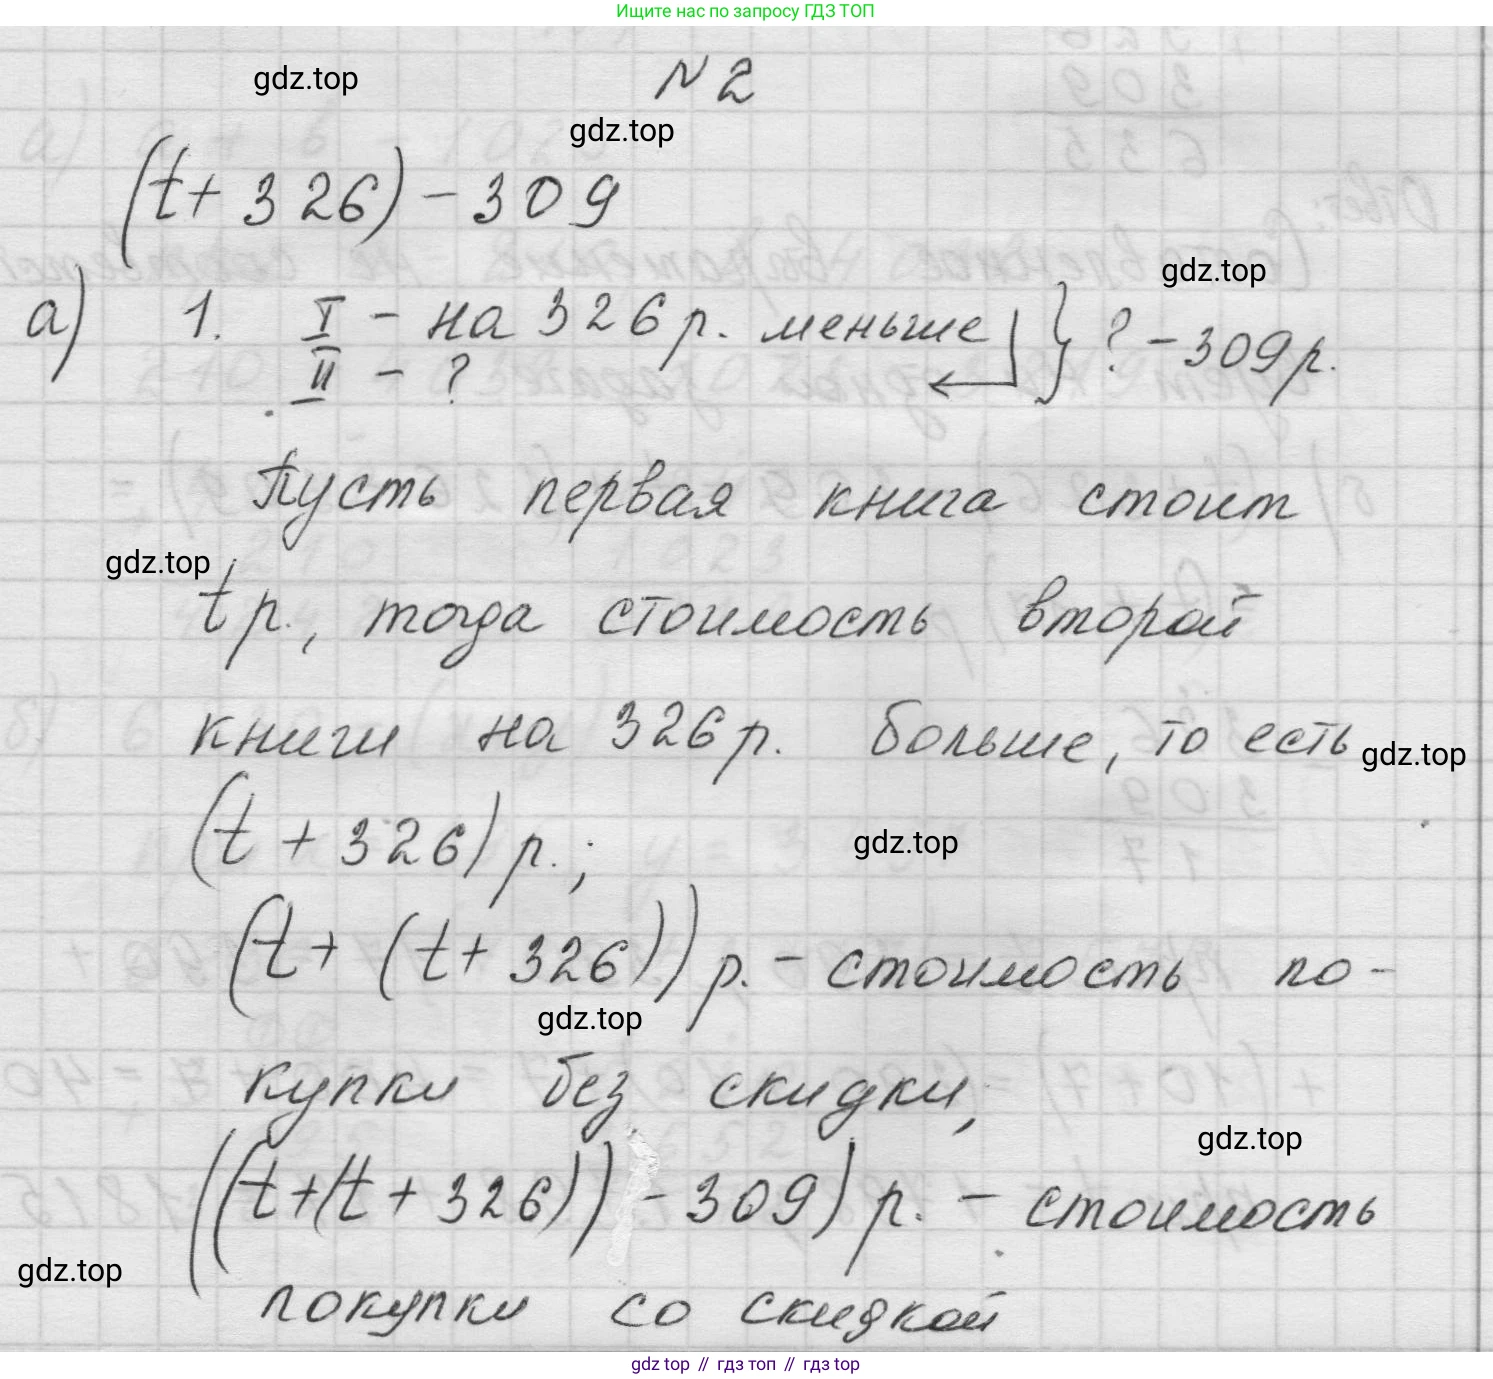 Ищите нас по запросу ГДЗ ТОП
gdz.top
№ 2
gdz.top
(t + 326) - 309
gdz.top
а) 1. I - на 326 р. меньше } ? - 309 р.
II - ?
Пусть первая книга стоит
gdz.top
t р., тогда стоимость второй
книги на 326 р. больше, то есть
gdz.top
(t + 326) р.;
gdz.top
(t + (t + 326)) р. - стоимость по-
gdz.top
купки без скидки,
gdz.top
((t + (t + 326)) - 309) р. - стоимость
gdz.top
покупки со скидкой
gdz top // гдз топ // gdz top